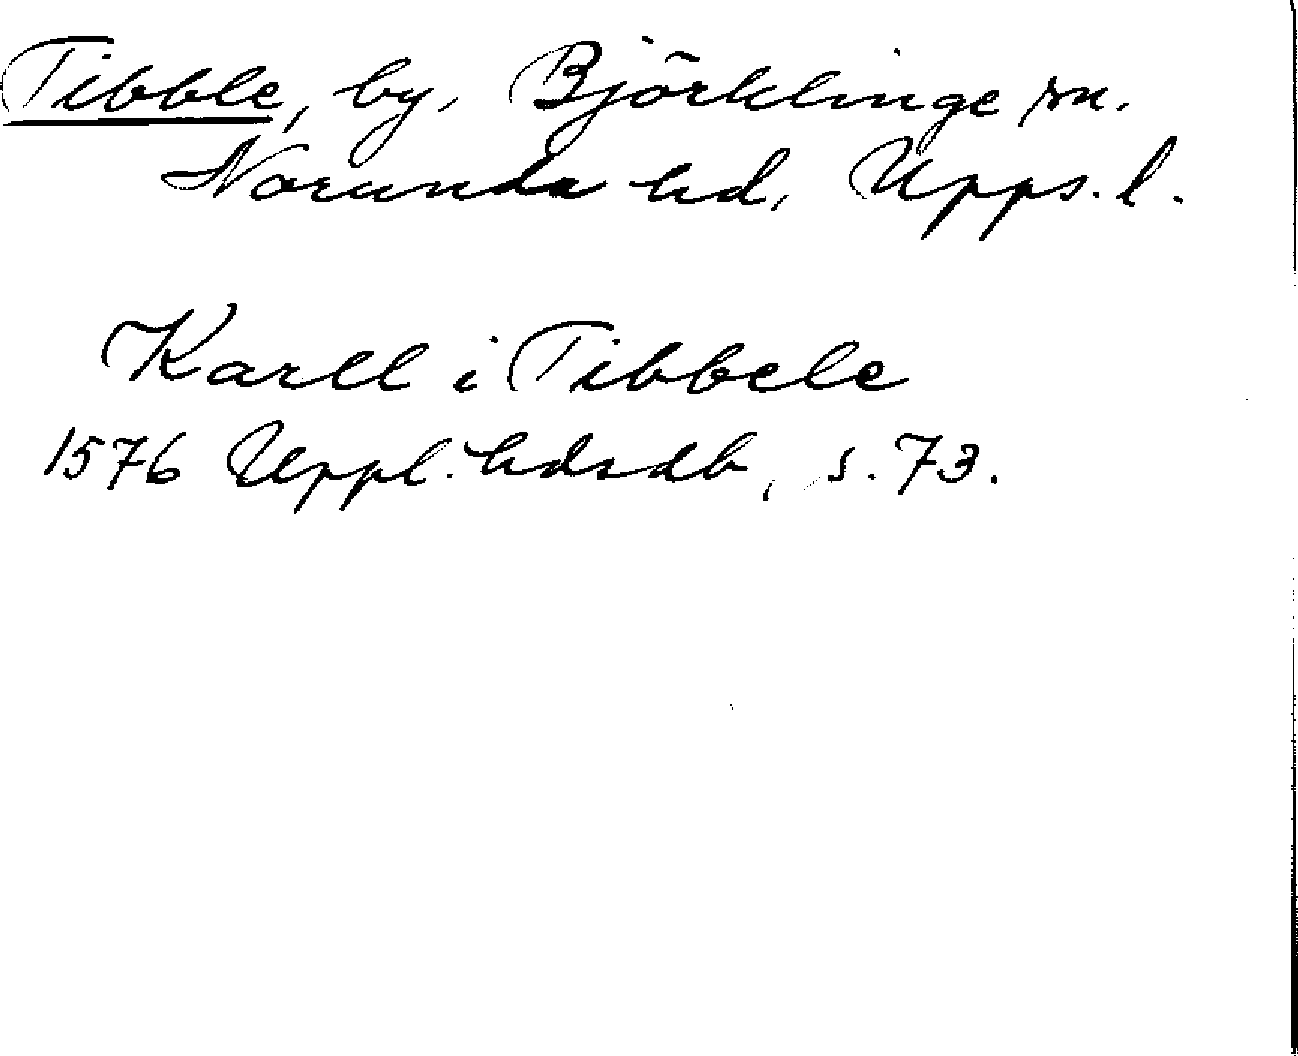 Tibble, by, Björklinge sn.
Norunda hd, Upps. l.
Karll i Tibbele
1576 Uppl. hdsdb, s. 73.